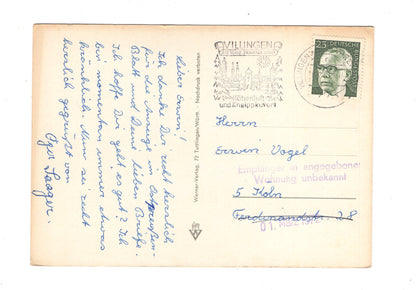 Lieber Erwin!
Ich danke Dir recht herzlich
für die Anzeige im Ostpreußen-
Blatt und Deine lieben Briefe.
Ich hoffe Dir geht es gut? Ich
bin momentan immer etwas
kränklich. Nun sei recht
herzlich gegrüßt von
Werner-Verlag, 72 Tuttlingen/Württ. - Nachdruck verboten
VILLINGEN
und Kneippkurort
25
DEUTSCHE BUNDESPOST
Herrn
Erwin Vogel
Empfänger in angegebener
Wohnung unbekannt
5 Köln
Ferdinandstr. 28
01. März